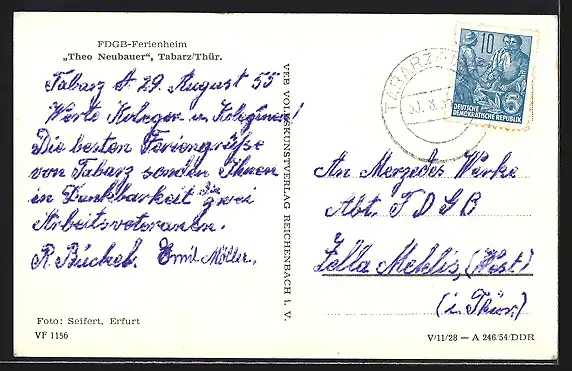 FDGB-Ferienheim
„Theo Neubauer", Tabarz/Thür.
Tabarz d. 29. August 55
Werte Kolegen u. Koleginen!
Die besten Feriengrüße
von Tabarz senden Ihnen
in Dankbarkeit die zwei
Arbeitsveteranen.
R. Bückel. Emil Möller.
Foto: Seifert, Erfurt
VF 1156
VEB VOLKSKUNSTVERLAG REICHENBACH i. V.
TABARZ
30. 8. 55
10
DEUTSCHE
DEMOKRATISCHE REPUBLIK
An Merzedes Werke
Abt. FDGB
Zella Mehlis, (West)
(i. Thür.)
V/11/28 — A 246/54/DDR